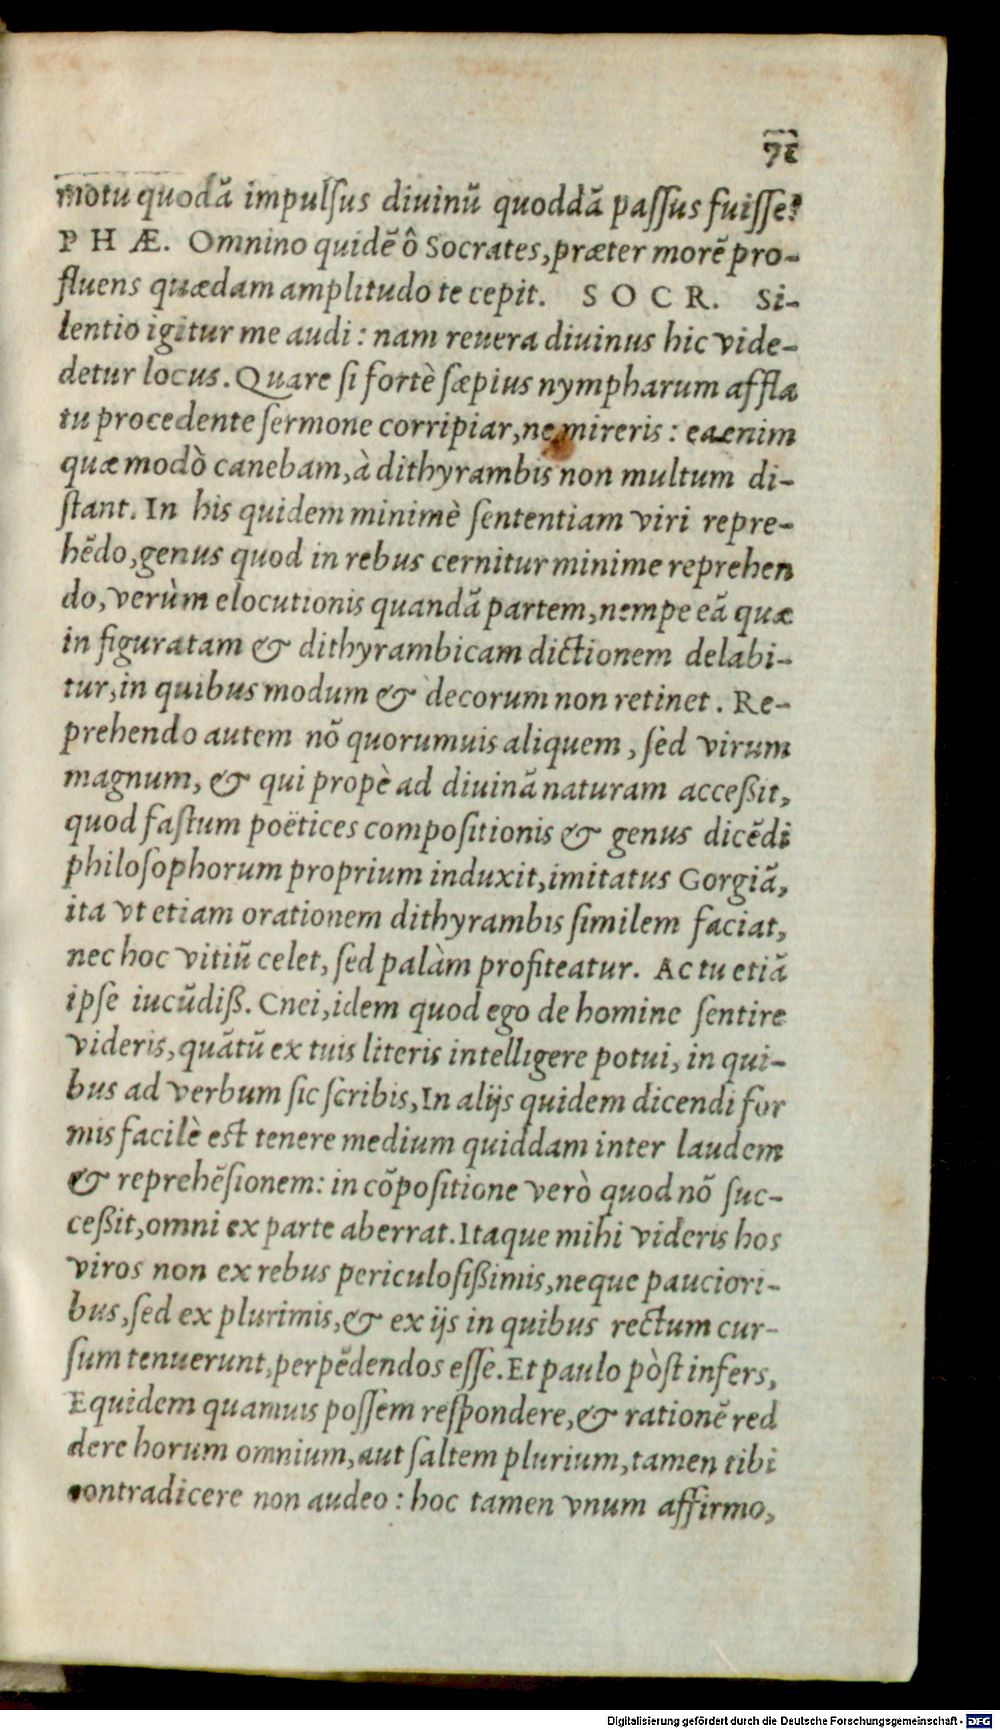 71
motu quodā impulſus diuinū quoddā paſſus fuiſſe?
P H Æ. Omnino quidē ô Socrates, præter morē pro-
fluens quædam amplitudo te cepit. S O C R. Si-
lentio igitur me audi: nam reuera diuinus hic vide-
detur locus. Quare ſi fortè ſæpius nympharum affla
tu procedente ſermone corripiar, ne mireris: ea enim
quæ modò canebam, à dithyrambis non multum di-
ſtant. In his quidem minimè ſententiam viri repre-
hēdo, genus quod in rebus cernitur minime reprehen
do, verùm elocutionis quandā partem, nempe eā quæ
in figuratam & dithyrambicam dictionem delabi-
tur, in quibus modum & decorum non retinet. Re-
prehendo autem nō quorumuis aliquem, ſed virum
magnum, & qui propè ad diuinā naturam acceßit,
quod faſtum poëtices compoſitionis & genus dicēdi
philoſophorum proprium induxit, imitatus Gorgiā,
ita vt etiam orationem dithyrambis ſimilem faciat,
nec hoc vitiū celet, ſed palàm profiteatur. Ac tu etiā
ipſe iucūdiß. Cnei, idem quod ego de homine ſentire
videris, quātū ex tuis literis intelligere potui, in qui-
bus ad verbum ſic ſcribis, In alijs quidem dicendi for
mis facilè eſt tenere medium quiddam inter laudem
& reprehēſionem: in cōpoſitione verò quod nō ſuc-
ceßit, omni ex parte aberrat. Itaque mihi videris hos
viros non ex rebus periculoſißimis, neque paucriori-
bus, ſed ex plurimis, & ex ijs in quibus rectum cur-
ſum tenuerunt, perpēdendos eſſe. Et paulo pòſt infers,
Equidem quamuis poſſem reſpondere, & rationē red
dere horum omnium, aut ſaltem plurium, tamen tibi
contradicere non audeo: hoc tamen vnum affirmo,
Digitalisierung gefördert durch die Deutsche Forschungsgemeinschaft - DFG